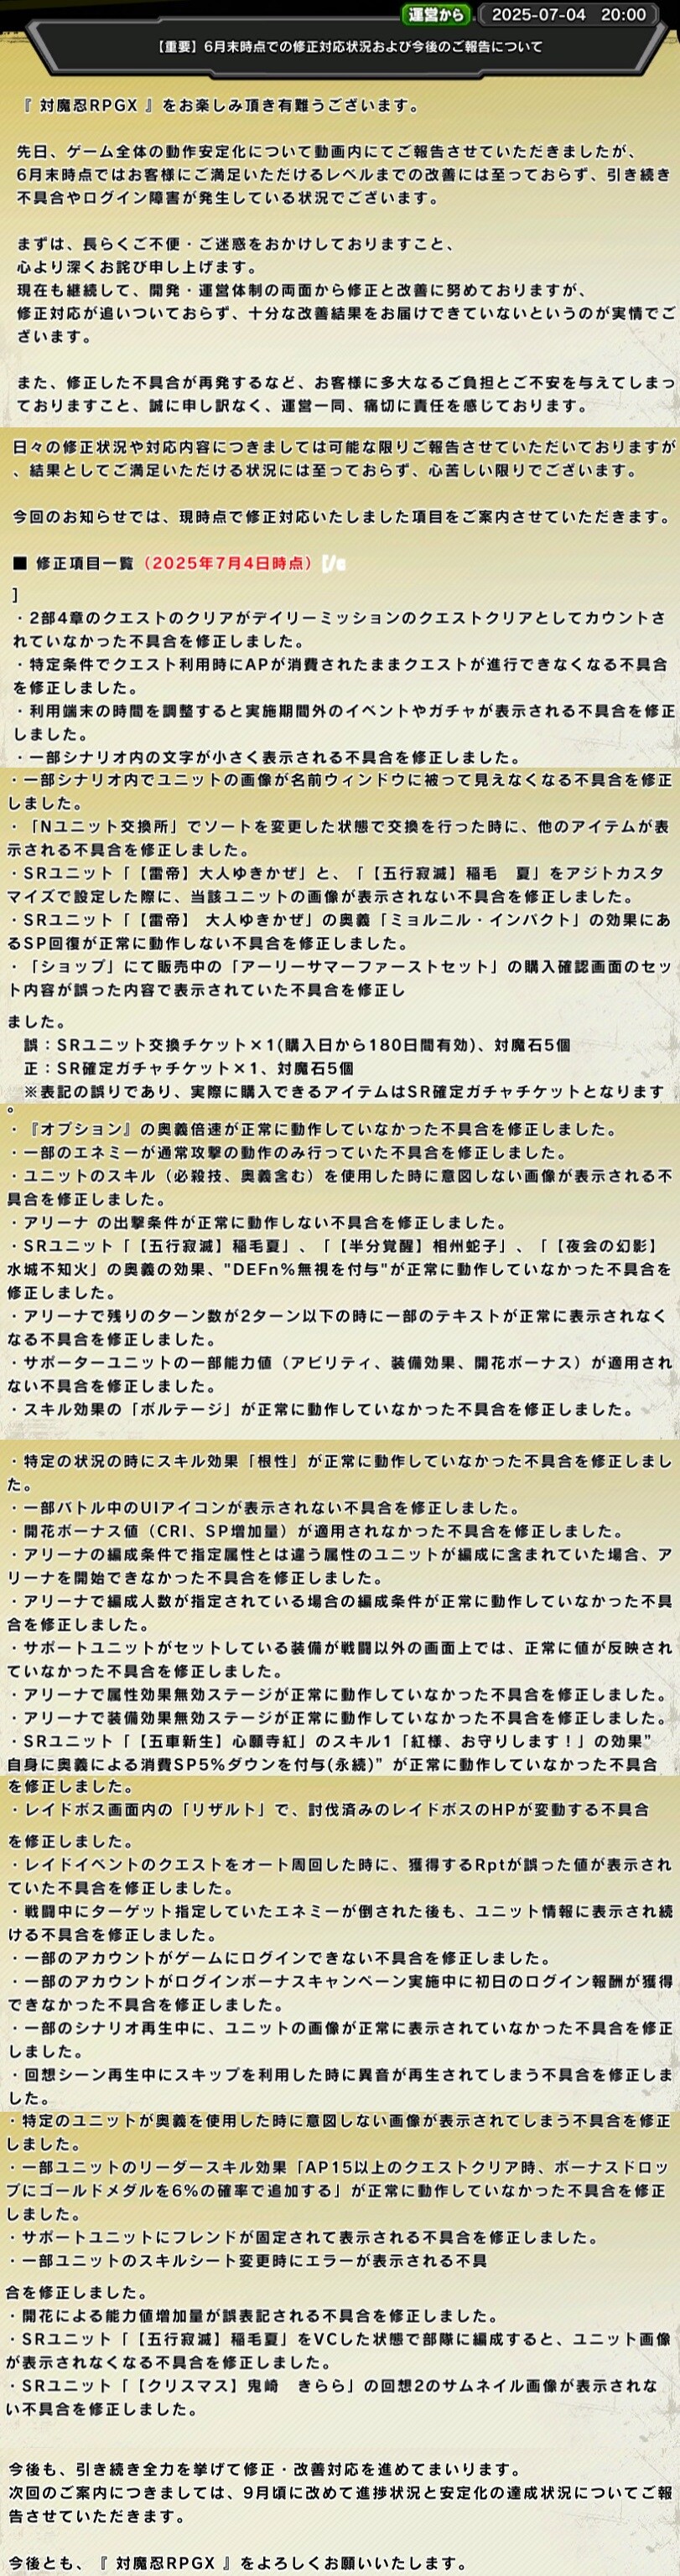 運営から 2025-07-04 20:00
【重要】6月末時点での修正対応状況および今後のご報告について
『 対魔忍RPGX 』をお楽しみ頂き有難うございます。
先日、ゲーム全体の動作安定化について動画内にてご報告させていただきましたが、
6月末時点ではお客様にご満足いただけるレベルまでの改善には至っておらず、引き続き
不具合やログイン障害が発生している状況でございます。
まずは、長らくご不便・ご迷惑をおかけしておりますこと、
心より深くお詫び申し上げます。
現在も継続して、開発・運営体制の両面から修正と改善に努めておりますが、
修正対応が追いついておらず、十分な改善結果をお届けできていないというのが実情でご
ざいます。
また、修正した不具合が再発するなど、お客様に多大なるご負担とご不安を与えてしまっ
ておりますこと、誠に申し訳なく、運営一同、痛切に責任を感じております。
日々の修正状況や対応内容につきましては可能な限りご報告させていただいておりますが
、結果としてご満足いただける状況には至っておらず、心苦しい限りでございます。
今回のお知らせでは、現時点で修正対応いたしました項目をご案内させていただきます。
■ 修正項目一覧（2025年7月4日時点）[/c
]
・2部4章のクエストのクリアがデイリーミッションのクエストクリアとしてカウントさ
れていなかった不具合を修正しました。
・特定条件でクエスト利用時にAPが消費されたままクエストが進行できなくなる不具合
を修正しました。
・利用端末の時間を調整すると実施期間外のイベントやガチャが表示される不具合を修正
しました。
・一部シナリオ内の文字が小さく表示される不具合を修正しました。
・一部シナリオ内でユニットの画像が名前ウィンドウに被って見えなくなる不具合を修正
しました。
・「Nユニット交換所」でソートを変更した状態で交換を行った時に、他のアイテムが表
示される不具合を修正しました。
・SRユニット「【雷帝】大人ゆきかぜ」と、「【五行寂滅】稲毛　夏」をアジトカスタ
マイズで設定した際に、当該ユニットの画像が表示されない不具合を修正しました。
・SRユニット「【雷帝】 大人ゆきかぜ」の奥義「ミョルニル・インパクト」の効果にあ
るSP回復が正常に動作しない不具合を修正しました。
・「ショップ」にて販売中の「アーリーサマーファーストセット」の購入確認画面のセッ
ト内容が誤った内容で表示されていた不具合を修正し
ました。
　誤：SRユニット交換チケット×1(購入日から180日間有効)、対魔石5個
　正：SR確定ガチャチケット×1、対魔石5個
　※表記の誤りであり、実際に購入できるアイテムはSR確定ガチャチケットとなります
。
・『オプション』の奥義倍速が正常に動作していなかった不具合を修正しました。
・一部のエネミーが通常攻撃の動作のみ行っていた不具合を修正しました。
・ユニットのスキル（必殺技、奥義含む）を使用した時に意図しない画像が表示される不
具合を修正しました。
・アリーナ の出撃条件が正常に動作しない不具合を修正しました。
・SRユニット「【五行寂滅】稲毛夏」、「【半分覚醒】相州蛇子」、「【夜会の幻影】
水城不知火」の奥義の効果、"DEFn%無視を付与"が正常に動作していなかった不具合を
修正しました。
・アリーナで残りのターン数が2ターン以下の時に一部のテキストが正常に表示されなく
なる不具合を修正しました。
・サポーターユニットの一部能力値（アビリティ、装備効果、開花ボーナス）が適用され
ない不具合を修正しました。
・スキル効果の「ボルテージ」が正常に動作していなかった不具合を修正しました。
・特定の状況の時にスキル効果「根性」が正常に動作していなかった不具合を修正しまし
た。
・一部バトル中のUIアイコンが表示されない不具合を修正しました。
・開花ボーナス値（CRI、SP増加量）が適用されなかった不具合を修正しました。
・アリーナの編成条件で指定属性とは違う属性のユニットが編成に含まれていた場合、ア
リーナを開始できなかった不具合を修正しました。
・アリーナで編成人数が指定されている場合の編成条件が正常に動作していなかった不具
合を修正しました。
・サポートユニットがセットしている装備が戦闘以外の画面上では、正常に値が反映され
ていなかった不具合を修正しました。
・アリーナで属性効果無効ステージが正常に動作していなかった不具合を修正しました。
・アリーナで装備効果無効ステージが正常に動作していなかった不具合を修正しました。
・SRユニット「【五車新生】心願寺紅」のスキル1「紅様、お守りします！」の効果”
自身に奥義による消費SP5%ダウンを付与(永続)”が正常に動作していなかった不具合
を修正しました。
・レイドボス画面内の「リザルト」で、討伐済みのレイドボスのHPが変動する不具合
を修正しました。
・レイドイベントのクエストをオート周回した時に、獲得するRptが誤った値が表示され
ていた不具合を修正しました。
・戦闘中にターゲット指定していたエネミーが倒された後も、ユニット情報に表示され続
ける不具合を修正しました。
・一部のアカウントがゲームにログインできない不具合を修正しました。
・一部のアカウントがログインボーナスキャンペーン実施中に初日のログイン報酬が獲得
できなかった不具合を修正しました。
・一部のシナリオ再生中に、ユニットの画像が正常に表示されていなかった不具合を修正
しました。
・回想シーン再生中にスキップを利用した時に異音が再生されてしまう不具合を修正しま
した。
・特定のユニットが奥義を使用した時に意図しない画像が表示されてしまう不具合を修正
しました。
・一部ユニットのリーダースキル効果「AP15以上のクエストクリア時、ボーナスドロッ
プにゴールドメダルを6%の確率で追加する」が正常に動作していなかった不具合を修正
しました。
・サポートユニットにフレンドが固定されて表示される不具合を修正しました。
・一部ユニットのスキルシート変更時にエラーが表示される不具
合を修正しました。
・開花による能力値増加量が誤表記される不具合を修正しました。
・SRユニット「【五行寂滅】稲毛夏」をVCした状態で部隊に編成すると、ユニット画像
が表示されなくなる不具合を修正しました。
・SRユニット「【クリスマス】鬼崎　きらら」の回想2のサムネイル画像が表示されな
い不具合を修正しました。
今後も、引き続き全力を挙げて修正・改善対応を進めてまいります。
次回のご案内につきましては、9月頃に改めて進捗状況と安定化の達成状況についてご報
告させていただきます。
今後とも、『 対魔忍RPGX 』をよろしくお願いいたします。